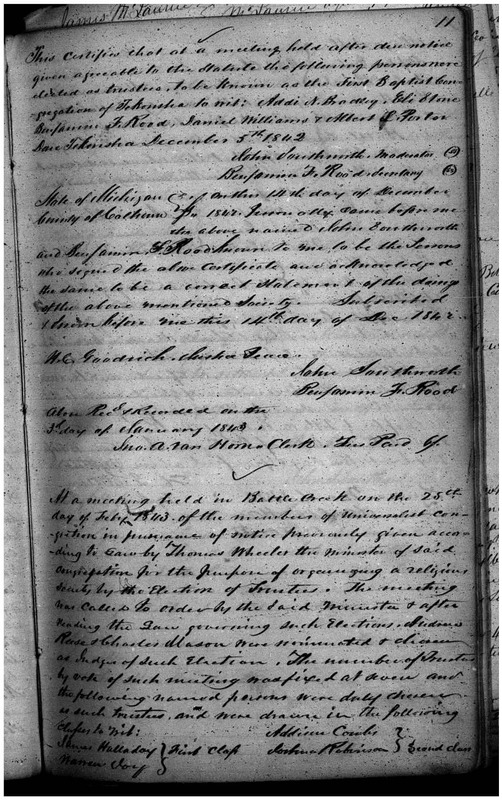 11
This certifies that at a meeting held after due notice
given agreeable to the Statute the following persons were
elected as trustees, to be known as the First Baptist Con-
gregation of Tekonsha to wit: Addi N. Bradley, Eli Stone
Benjamin F. Rood, Daniel Williams & Albert Porter
Date Tekonsha December 5th 1842
John Southworth, Moderator
Benjamin F. Rood Secretary
State of Michigan
County of Calhoun
On this 14th day of December
in 1842 Personally came before me
the above named John Southworth
and Benjamin F. Rood known to me to be the Persons
who signed the above Certificate and acknowledged
the same to be a correct Statement of the doings
of the above mentioned Society. Subscribed
& Sworn before me this 14th day of Dec 1842.
Goodrich. Justice Peace.
John Southworth
Benjamin F. Rood
Above Recd & Recorded on the
3d day of January 1843.
Jno. A. Van Horne Clerk. Fees Paid
At a meeting held in Battle Creek on the 25th
day of Feby 1843 of the members of Universalist con-
gation in pursuance of notice previously given accor-
ding to Law by Thomas Wheeler the minister of said
congregation for the Purpose of organizing a religious
Society by the Election of Trustees. The meeting
was called to order by the said Minister & after
reading the Law governing such Elections. Andrew
Rose & Charles Mason were nominated & chosen
as Judges of such Election. The number of Trustees
by vote of such meeting was fixed at seven and
the following named persons were duly chosen
as such trustees, and were drawn in the following
classes to wit:
James Halladay
Warren Joy
First Class
Addison Combs
Joshua Robinson
Second class